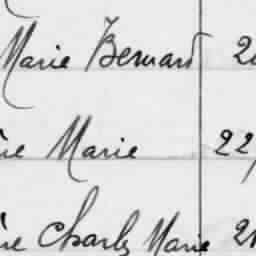 Marie Bernard 2
re Marie 22
re Charles Marie 2